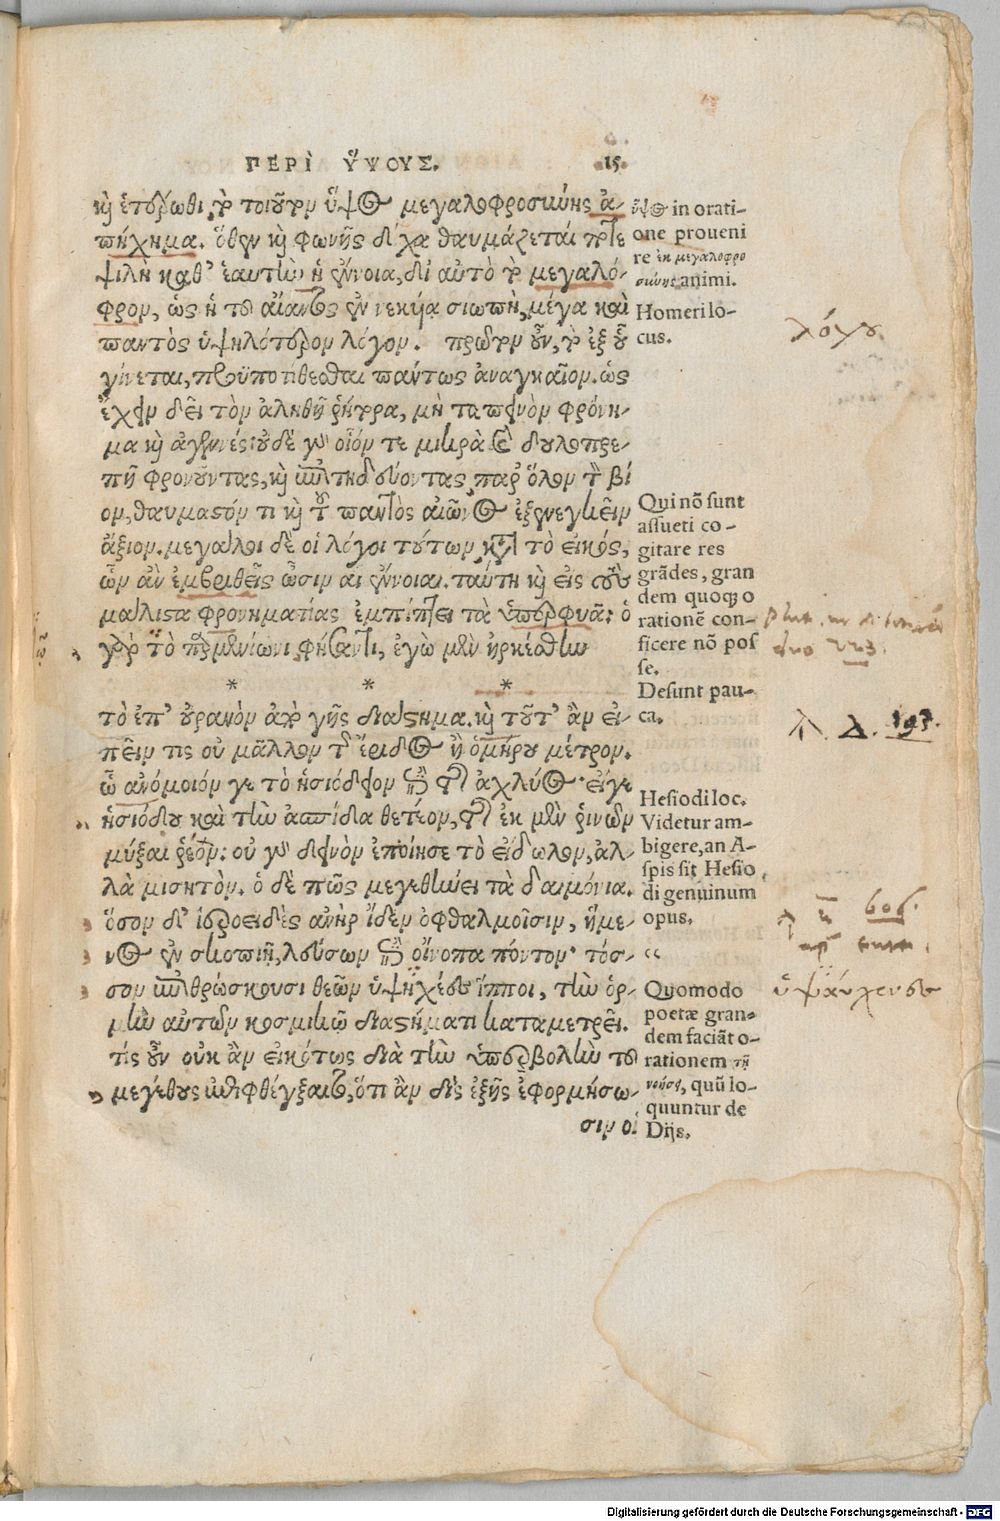 ΠΕΡῚ ὝΨΟΥΣ. 15
κỳ ἑτέρωθι, τὸ τοιοῦτον ὕψος μεγαλοφροσύνης ἀ-
πήχημα. ὅθεν κỳ φωνῆς δίχα θαυμάζεταί ποτε
ψιλὴ καθ' ἑαυτὴν ἡ ἔννοια, δι' αὐτὸ τὸ μεγαλό-
φρον, ὡς ἡ τοῦ αἴαντος ἐν νεκυίᾳ σιωπὴ, μέγα καὶ
παντὸς ὑψηλότερον λόγον. πρῶτον οὖν, τὸ ἐξ οὗ
γίνεται, προϋποτίθεσθαι πάντως ἀναγκαῖον. ὡς
ἔχειν δεῖ τὸν ἀληθῆ ῥήτορα, μὴ ταπεινὸν φρόνη-
μα κỳ ἀγεννές: οὐδὲ γὰρ οἷόν τε μικρὰ καὶ δουλοπρε-
πῆ φρονοῦντας, κỳ ἐπιτηδεύοντας παρ' ὅλον τὸν βί
ον, θαυμαστόν τι κỳ τοῦ παντὸς αἰῶνος ἐξενεγκεῖν
ἄξιον. μεγάλοι δὲ οἱ λόγοι τούτων κατὰ τὸ εἰκός,
ὧν ἂν ἐμβριθεῖς ὦσιν αἱ ἔννοιαι. ταύτῃ κỳ εἰς τοὺς
μάλιστα φρονηματίας ἐμπίπτει τὰ ὑπερφυᾶ: ὁ
γὰρ τῷ παρμενίωνι φήσαντι, ἐγὼ μὲν ἠρκέσθην
* * *
τὸ ἐπ' οὐρανὸν ἀπὸ γῆς διάστημα. κỳ τοῦτ' ἂν εἰ-
πεῖν τις οὐ μᾶλλον τῆς ἔριδος ἢ ὁμήρου μέτρον.
ᾧ ἀνόμοιόν γε τὸ ἡσιόδειον ἐπὶ τῆς ἀχλύος· εἴγε
ἡσιόδου καὶ τὴν ἀσπίδα θετέον, τῆς ἐκ μὲν ῥινῶν
μύξαι ῥέον: οὐ γὰρ δεινὸν ἐποίησε τὸ εἴδωλον, ἀλ-
λὰ μισητόν. ὁ δὲ πῶς μεγεθύνει τὰ δαιμόνια.
ὅσον δ' ἠεροειδὲς ἀνὴρ ἴδεν ὀφθαλμοῖσιν, ἥμε-
νος ἐν σκοπιῇ, λεύσσων ἐπὶ οἴνοπα πόντον· τόσ-
σον ἐπιθρώσκουσι θεῶν ὑψηχέες ἵπποι, τὴν ὁρ-
μὴν αὐτῶν κοσμικῷ διαστήματι καταμετρεῖ.
τίς οὖν οὐκ ἂν εἰκότως διὰ τὴν ὑπερβολὴν τοῦ
μεγέθους ἐπιφθέγξαιτο, ὅτι ἂν δὶς ἑξῆς ἐφορμήσω-
σιν οἱ
ὕψος in orati-
one proueni
re ἐκ μεγαλοφρο
σύνης animi.
Homeri lo-
cus.
Qui nõ sunt
assueti co-
gitare res
grãdes, gran
dem quoq; o
rationẽ con-
ficere nõ pos
se.
Desunt pau-
ca.
Hesiodi loc.
Videtur am-
bigere, an A-
spis sit Hesio
di genuinum
opus.
“
Quomodo
poetæ gran-
dem faciãt o-
rationem τῇ
quũ lo-
quuntur de
Dijs.
λόγου.
Δ. 193.
606.
ὑψαύχενες
Digitalisierung gefördert durch die Deutsche Forschungsgemeinschaft - DFG